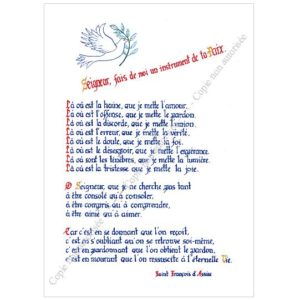 Seigneur, fais de moi un instrument de ta Paix.
Là où est la haine, que je mette l'amour.
Là où est l'offense, que je mette le pardon.
Là où est la discorde, que je mette l'union.
Là où est l'erreur, que je mette la vérité.
Là où est le doute, que je mette la foi.
Là où est le désespoir, que je mette l'espérance.
Là où sont les ténèbres, que je mette la lumière.
Là où est la tristesse que je mette la joie.
O Seigneur, que je ne cherche pas tant
à être consolé qu'à consoler,
à être compris qu'à comprendre,
à être aimé qu'à aimer.
Car c'est en se donnant que l'on reçoit,
c'est en s'oubliant qu'on se retrouve soi-même,
c'est en pardonnant que l'on obtient le pardon,
c'est en mourant que l'on ressuscite à l'éternelle Vie.
Saint François d'Assise
Copie non autorisée
Copie non autorisée